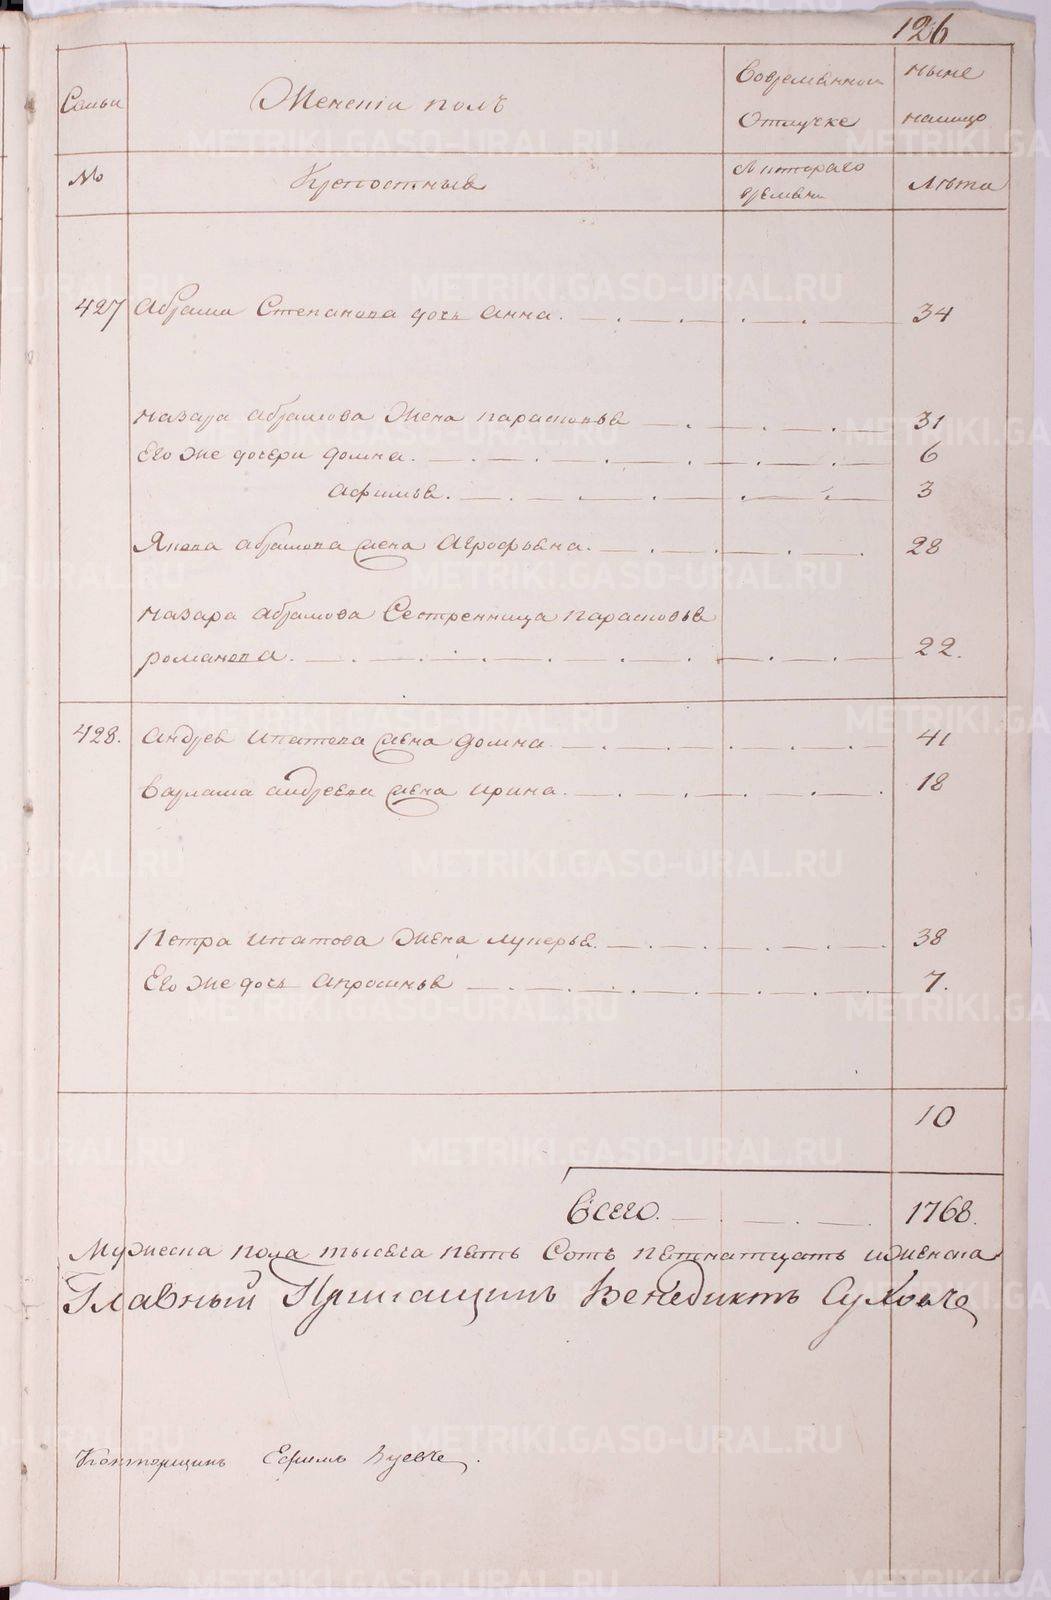 126
Семьи
Женскiй полъ
Во временной
отлучке
ныне
налицо
№
Крепостныя
с котораго
времени
Лѣта
427 Абрама Степанова дочь Анна. 34
Назара Абрамова Жена Парасковья 31
Его же дочери Домна. 6
Афимья. 3
Якова Абрамова жена Агрофьена. 28
Назара Абрамова Сестренница Парасковья
романова. 22.
428. Андрея Ипатова жена Домна 41
Варлама Андреева жена Ирина. 18
Петра Ипатова Жена Лукерья. 38
Его же дочь Апросинья 7.
10
Всего. 1768.
Мужеска пола тысеча пять Сотъ петнатцать иженска
Главный Прикащикъ Венедиктъ
Конторщикъ Ефимъ
METRIKI.GASO-URAL.RU